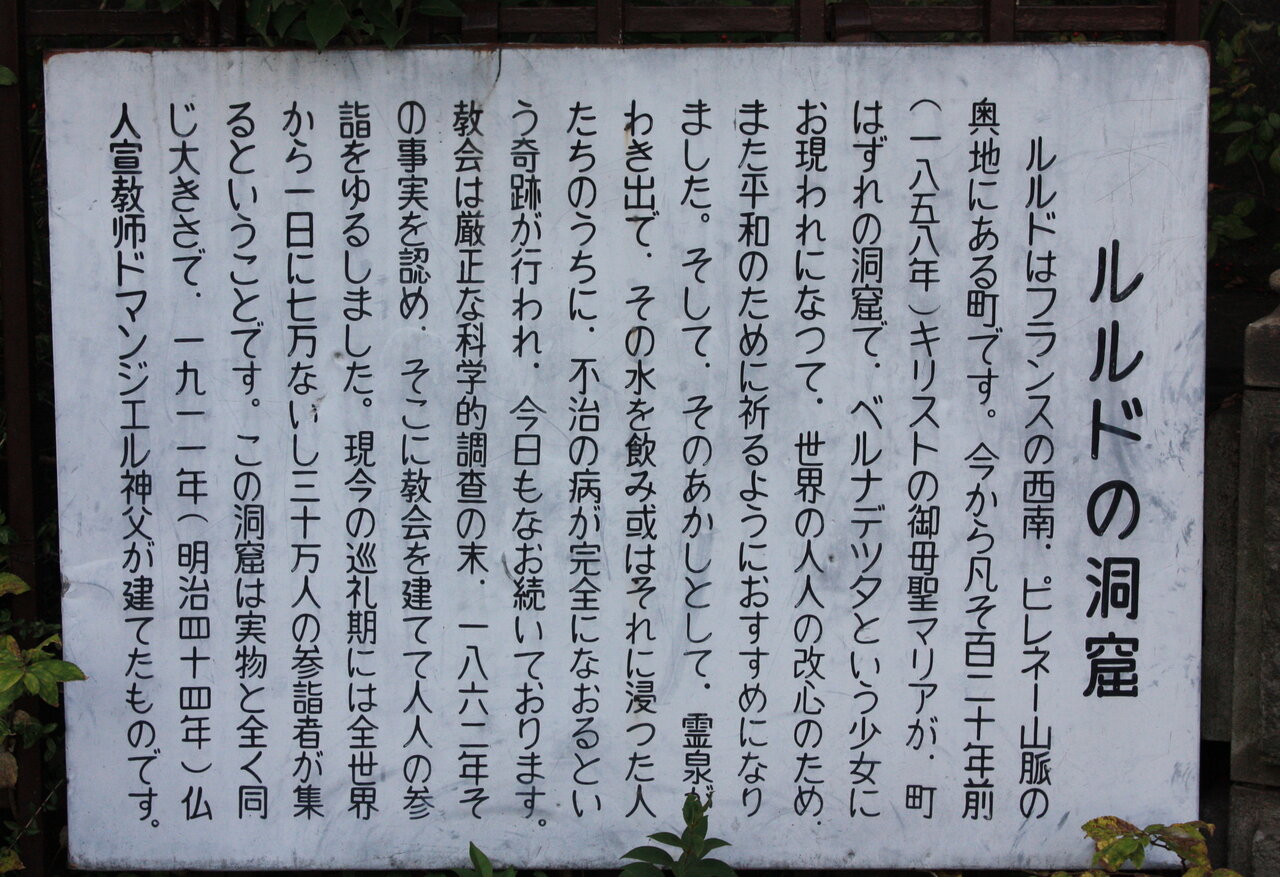 ルルドの洞窟
ルルドはフランスの西南．ピレネー山脈の
奥地にある町です。今から凡そ百二十年前
（一八五八年）キリストの御母聖マリアが．町
はずれの洞窟で．ベルナデツタという少女に
お現われになつて．世界の人人の改心のため．
また平和のために祈るようにおすすめになり
ました。そして．そのあかしとして．霊泉が
わき出で．その水を飲み或はそれに浸つた人
たちのうちに．不治の病が完全になおるとい
う奇跡が行われ．今日もなお続いております。
教会は厳正な科学的調査の末．一八六二年そ
の事実を認め．そこに教会を建てて人人の参
詣をゆるしました。現今の巡礼期には全世界
から一日に七万ないし三十万人の参詣者が集
るということです。この洞窟は実物と全く同
じ大きさで．一九一一年（明治四十四年）仏
人宣教師ドマンジエル神父が建てたものです。